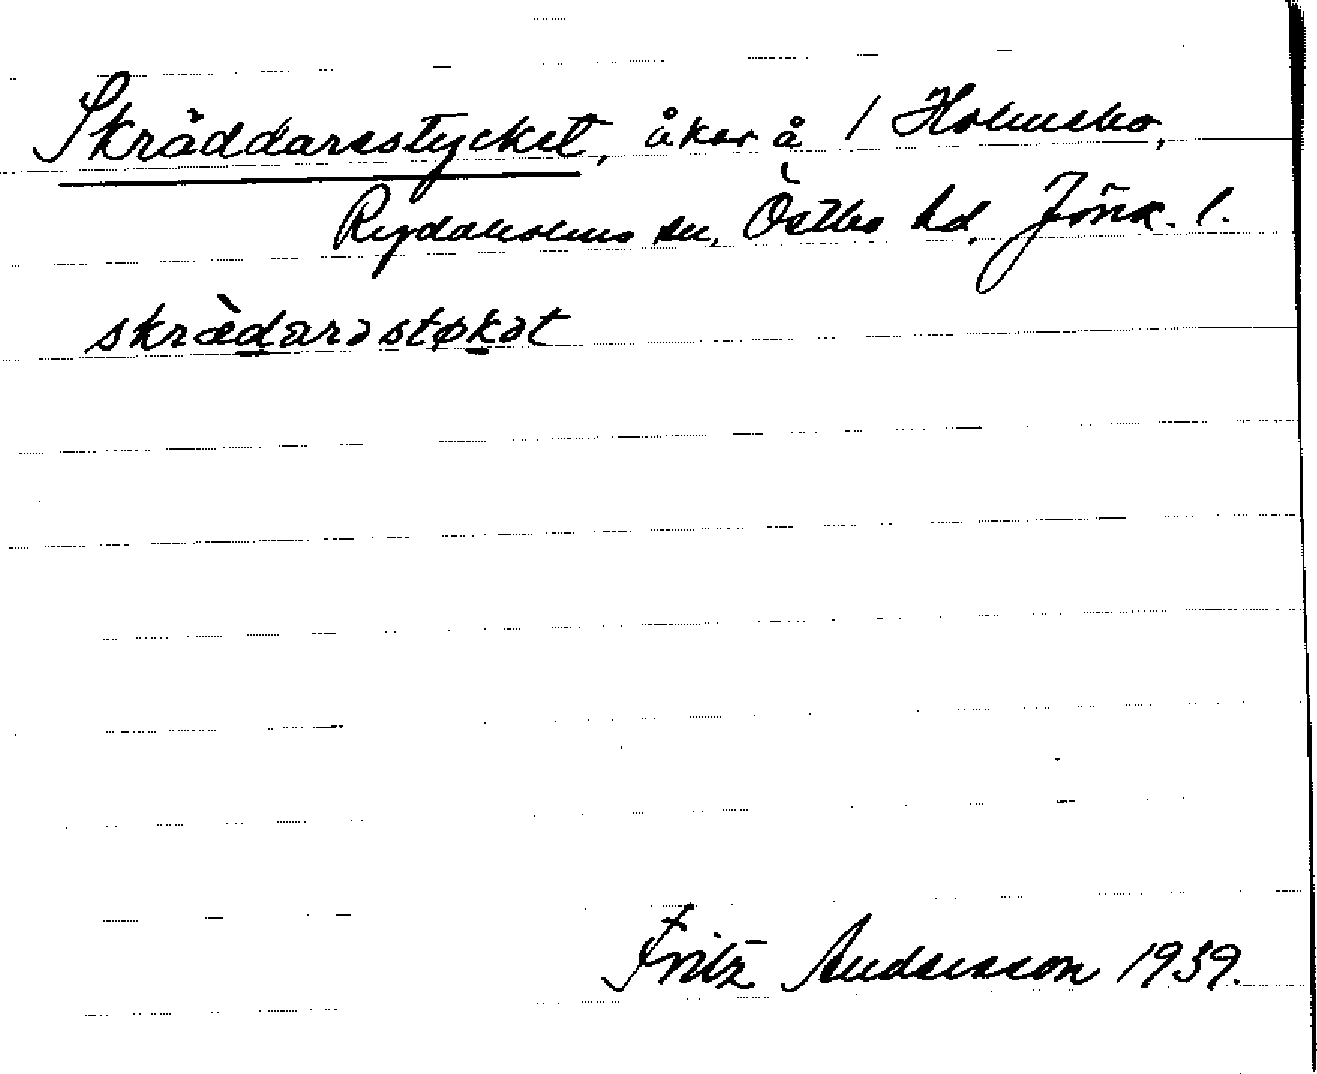 Skräddarestycket, åker å 1 Holmsbo,
Rydaholms sn, Östbo hd, Jönk. l.
skrædarəstøkət
Fritz Andersson 1939.